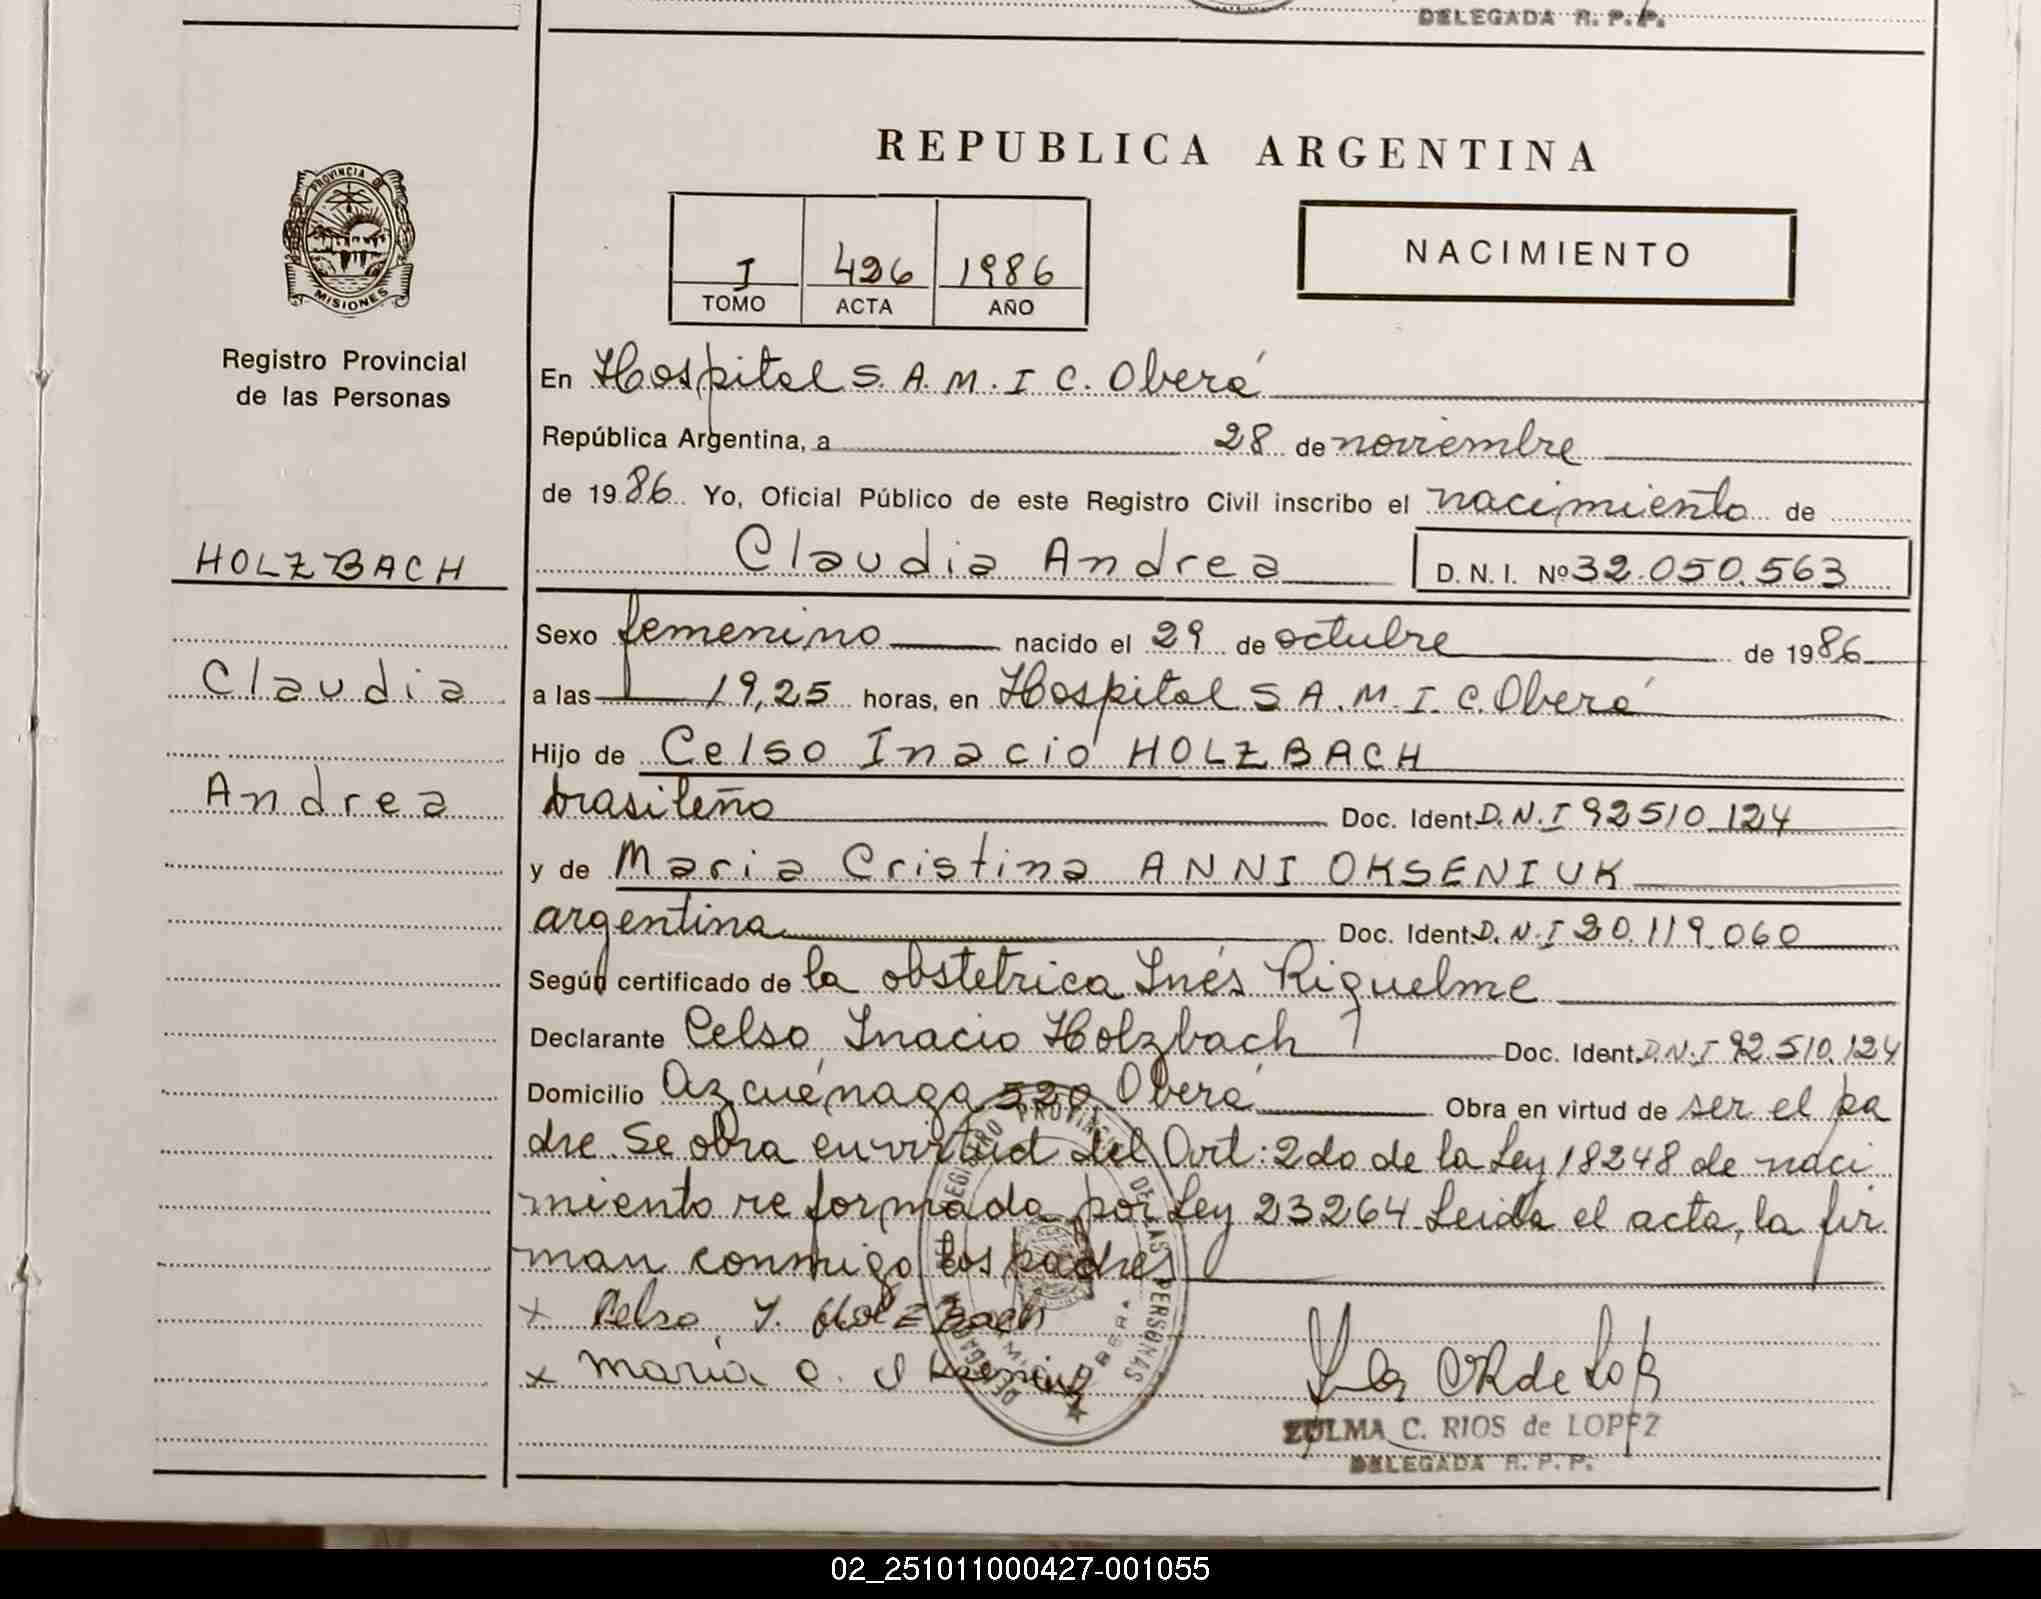 DELEGADA R. P. P.
REPUBLICA ARGENTINA
PROVINCIA DE
MISIONES
Registro Provincial
de las Personas
I 426 1986
TOMO ACTA AÑO
NACIMIENTO
En Hospital S. A. M. I C. Oberá
República Argentina, a 28 de noviembre
de 1986 Yo, Oficial Público de este Registro Civil inscribo el nacimiento de
HOLZBACH
Claudia Andrea D. N. I. Nº 32.050.563
Sexo femenino nacido el 29 de octubre de 1986
Claudia
a las 19,25 horas, en Hospital S A. M. I. C. Oberá
Hijo de Celso Inacio HOLZBACH
Andrea
brasileño Doc. Ident. D. N. I 92510.124
y de Maria Cristina ANNI OKSENIUK
argentina Doc. Ident. D. N. I 20.119.060
Según certificado de la obstetrica Inés Riquelme
Declarante Celso Inacio Holzbach Doc. Ident. D. N. I 92.510.124
Domicilio Azcuénaga 520 Oberá Obra en virtud de ser el pa
dre. Se obra en virtud del Art: 2do de la Ley 18248 de naci
miento reformada por Ley 23264 Leida el acta, la fir
man conmigo los padres
x Celso. Y. HolzBach
x Maria C. Okseniuk
REGISTRO PROVINCIAL DE LAS PERSONAS
ZULMA C. RIOS de LOPEZ
DELEGADA R. P. P.
02_251011000427-001055